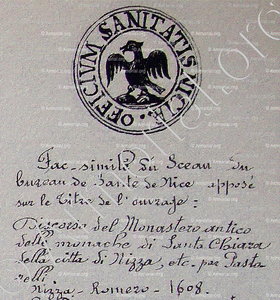 OFFICIUM SANITATIS NICIÆ.
Fac-similé du Sceau du
bureau de Santé de Nice apposé
sur le titre de l'ouvrage:
Discorso del Monastero antico
delle monache di Santa Chiara
della citta di Nizza, etc. par Pasto
relli
Nizza - Romero - 1608.